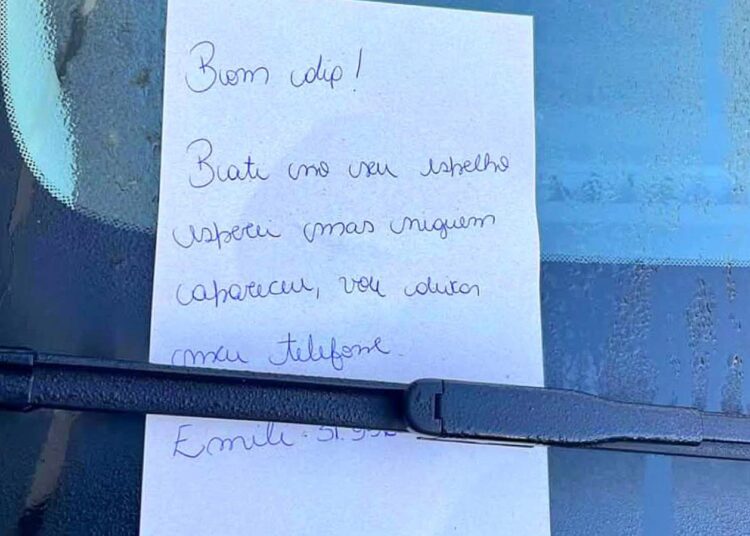 Bom dia!
Bati no seu espelho
esperei mas niguem
apareceu, vou deixar
meu telefone.
Emili - 51.